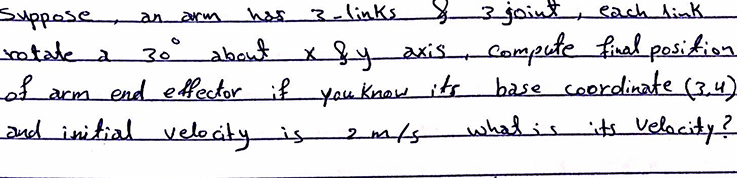 Suppose, an arm has 3-links & 3 joint, each link
rotate a 30° about x & y axis, compute final position
of arm end effector if you know its base coordinate (3,4)
and initial velocity is 2 m/s what is its velocity?